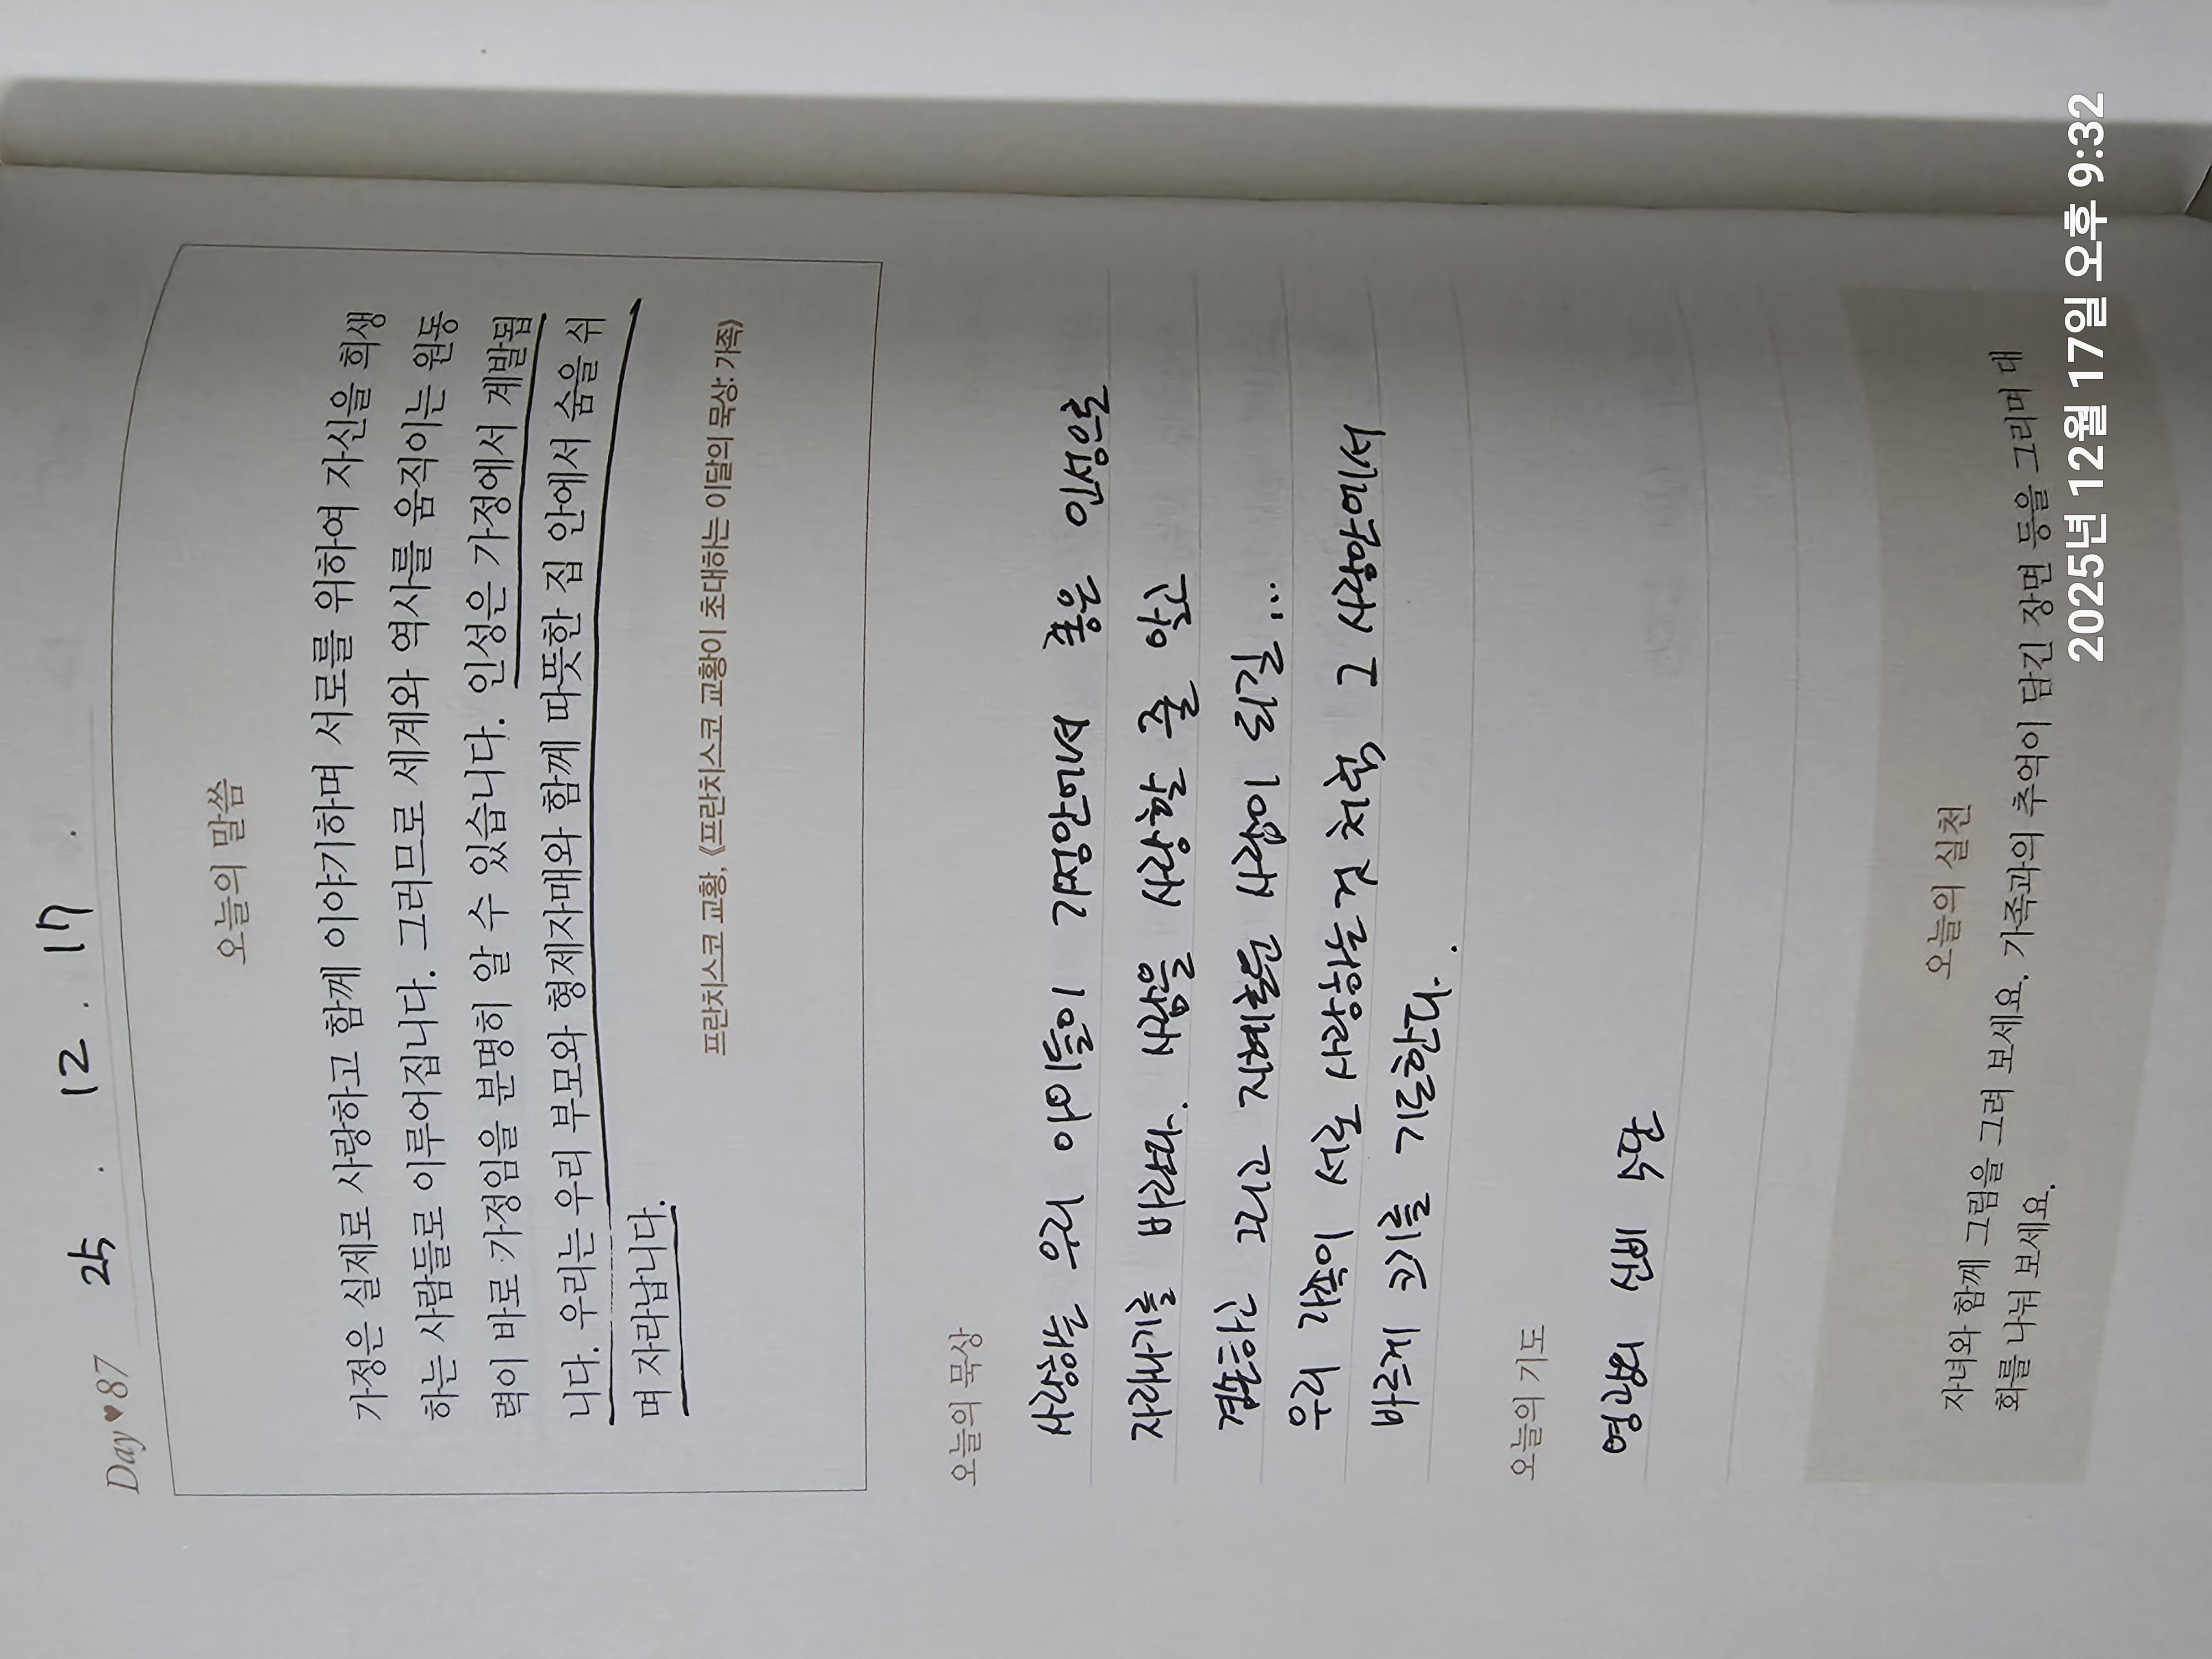 Day♥87 25. 12. 17.
오늘의 말씀
가정은 실제로 사랑하고 함께 이야기하며 서로를 위하여 자신을 희생
하는 사람들로 이루어집니다. 그러므로 세계와 역사를 움직이는 원동
력이 바로 가정임을 분명히 알 수 있습니다. 인성은 가정에서 계발됩
니다. 우리는 우리 부모와 형제자매와 함께 따뜻한 집 안에서 숨을 쉬
며 자라납니다.
프란치스코 교황, 《프란치스코 교황이 초대하는 이달의 묵상: 가족》
오늘의 묵상
사랑하는 우리 아이들이 가정안에서 좋은 인성으로
자라나기를 바란다. 사람을 사랑할 줄 알고
겸손하고 그리고 지혜로운 사람이 되길...
우리 가족이 서로 사랑하는 것 처럼 그 사랑안에서
바르게 크기를 기도한다.
오늘의 기도
영광의 신비 5단
오늘의 실천
자녀와 함께 그림을 그려 보세요. 가족과의 추억이 담긴 장면 등을 그리며 대
화를 나눠 보세요.
2025년 12월 17일 오후 9:32